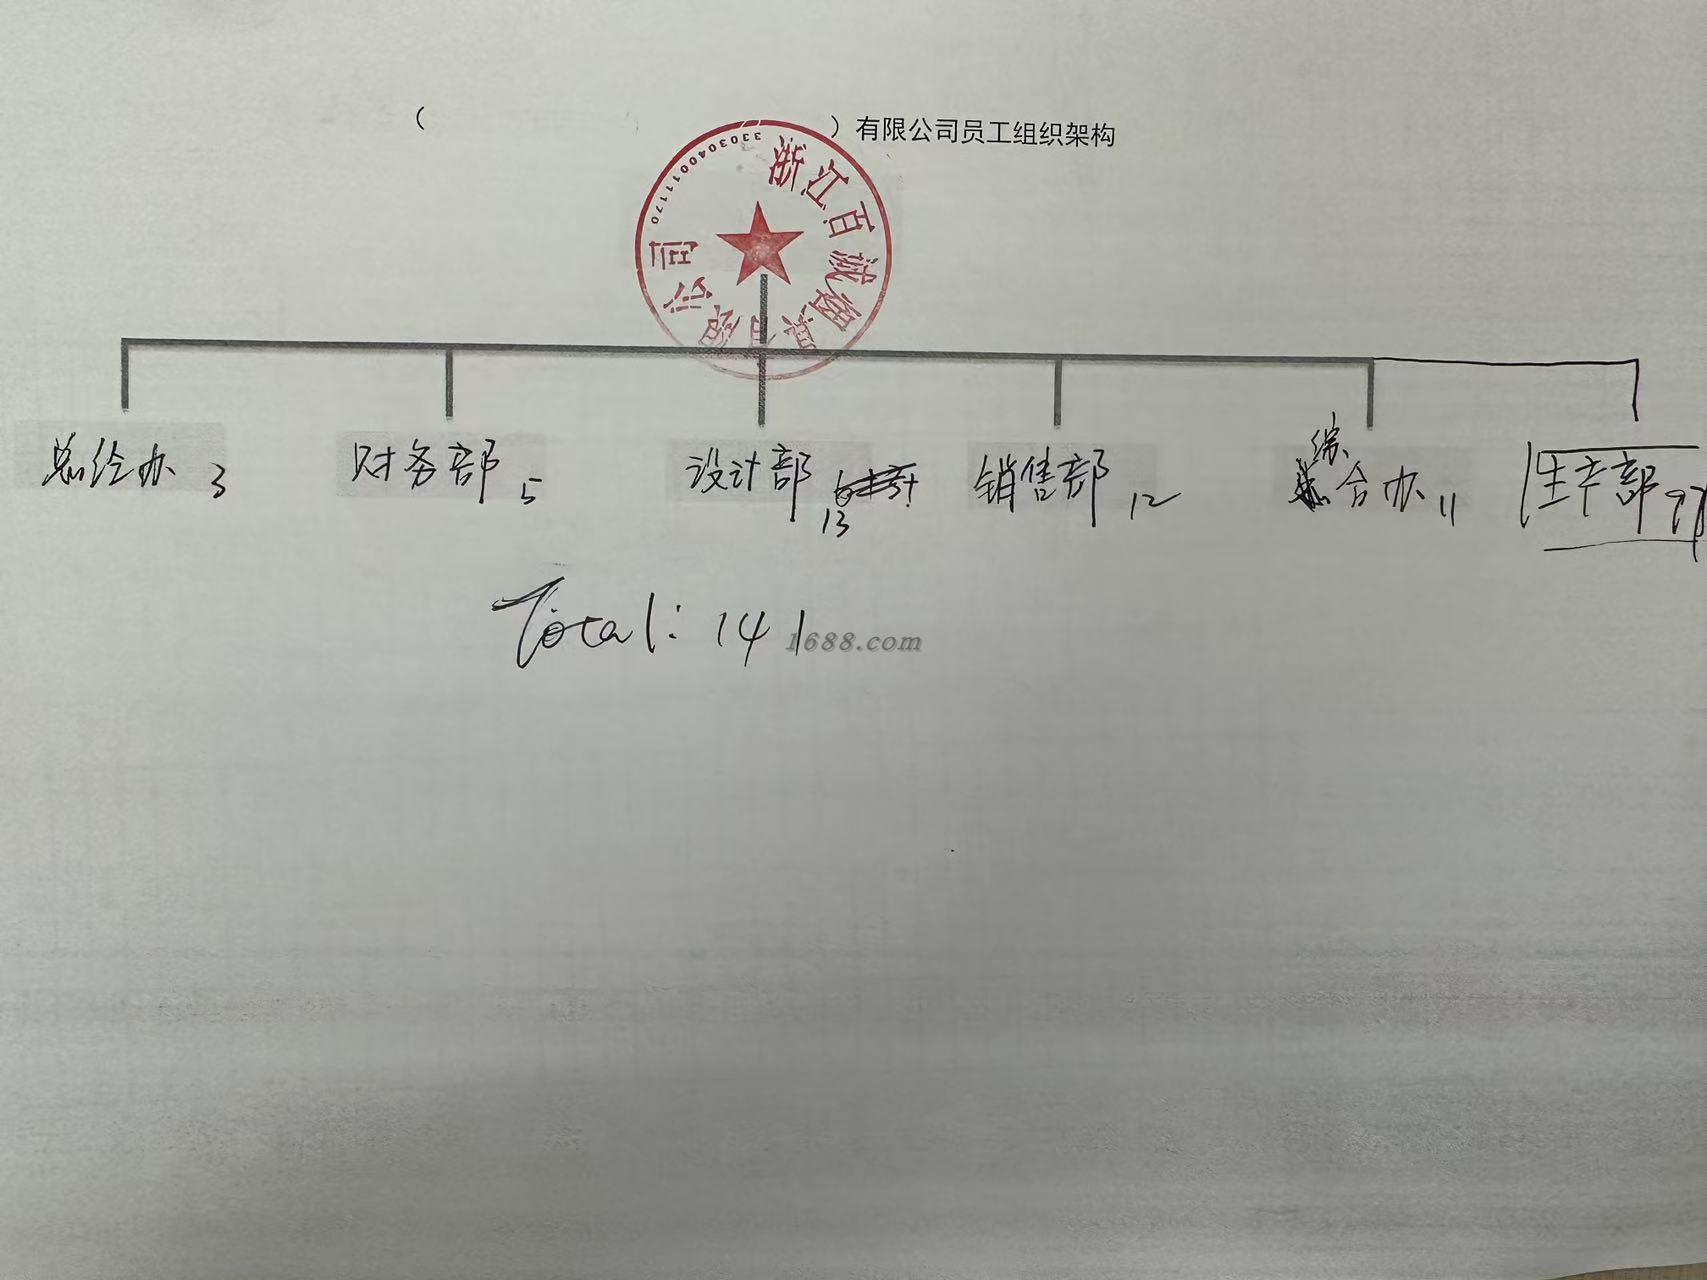 （ ）有限公司员工组织架构
浙江百诚烟具有限公司
3303040011170
总经办 3
财务部 5
设计部 13
销售部 12
综合办 11
生产部 97
Total: 141
1688.com